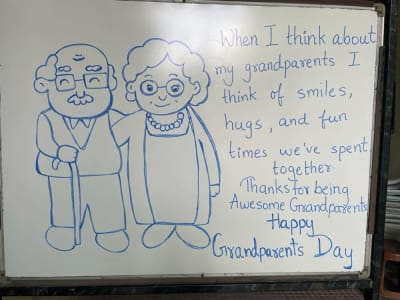 When I think about
my grandparents I
think of smiles,
hugs, and fun
times we've spent
together.
Thanks for being
Awesome Grandparents
Happy
Grandparents Day